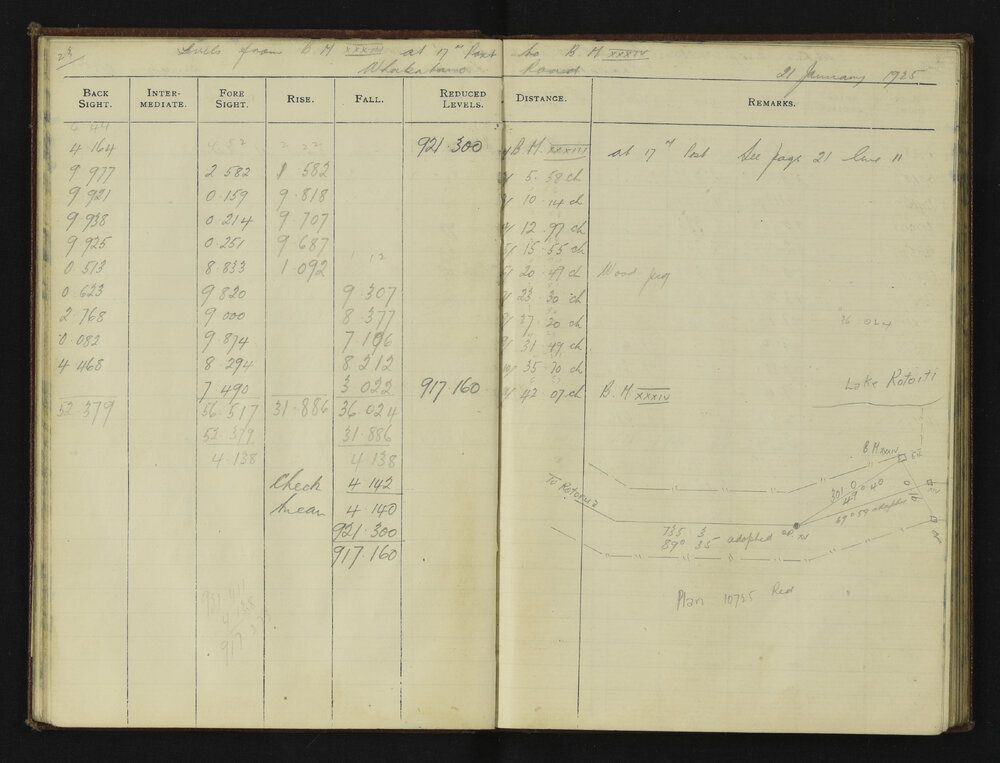 23
Levels from B M XXXIII at 17th Post to B M XXXIV
Road
21 January 1925
BACK SIGHT. INTER-MEDIATE. FORE SIGHT. RISE. FALL. REDUCED LEVELS. DISTANCE. REMARKS.
4·164 921·300 B M XXXIII at 17th Post See page 21 line 11
9 977 2 582 1 582 5·58 ch
9 921 0·159 9·818 10·14 ch
9·938 0·214 9·707 12·97 ch
9 925 0·251 9·687 15·55 ch
0·513 8·833 1 092 20·49 ch Wood peg
0·623 9 820 9·307 23·30 ch
2·768 9 000 8·377 27·20 ch 36 024
0·082 9 874 7·106 31·49 ch
4 468 8·294 8 212 35·70 ch
7 490 3 022 917·160 42·07 ch B. M XXXIV
52 379 56·517 31·886 36 024
52 379 31·886
4·138 4 138
Check 4 142
Mean 4·140
921·300
917·160
Lake Rotoiti
B. M XXXIV
To Rotorua
301 0
49° 40
69° 59 adopted
735 3
89° 35 adopted
Plan 10725 Red